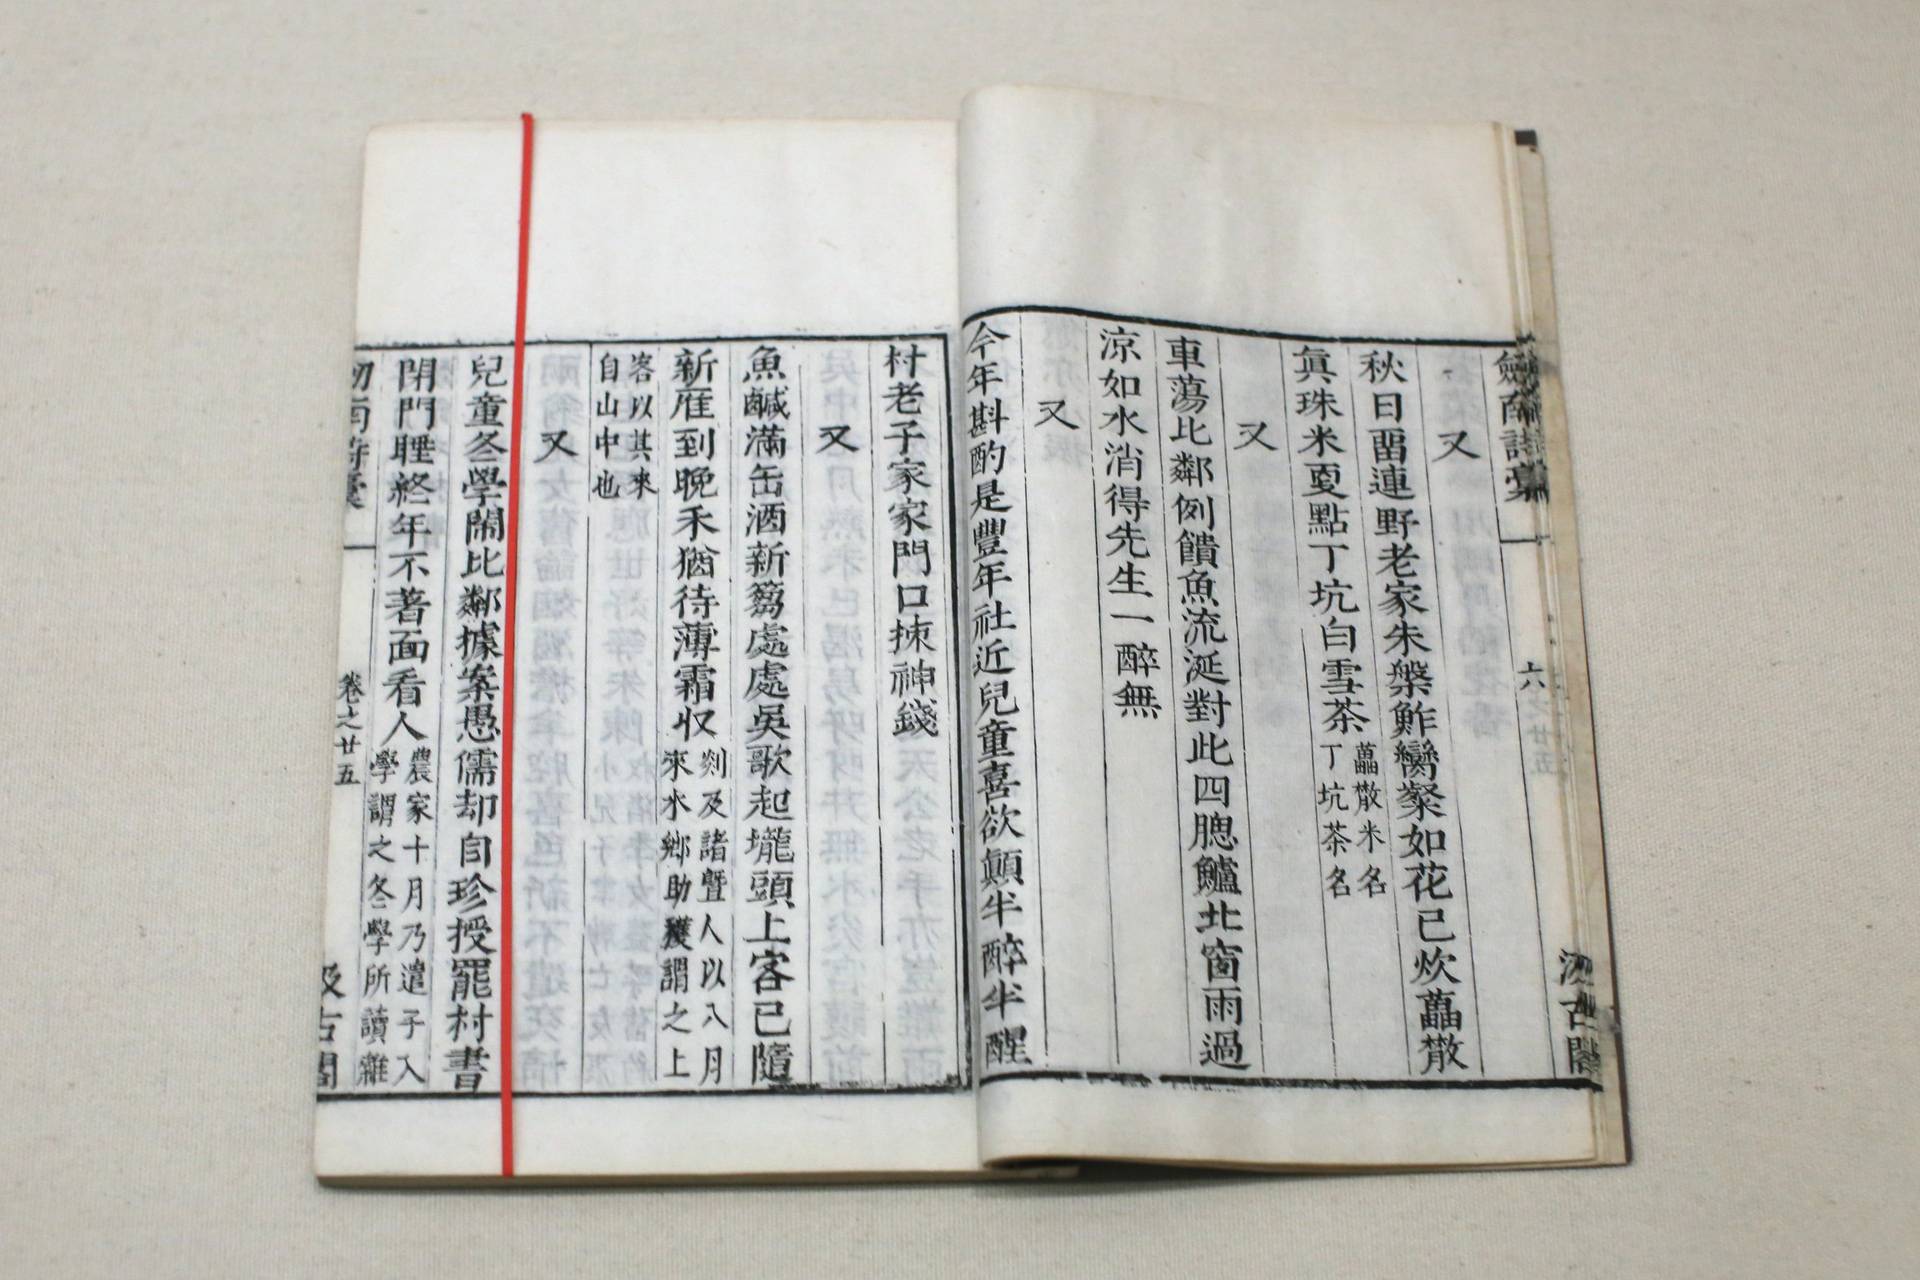 劍南詩稾 六 汲古閣
又
秋日畱連野老家朱槃鮓臠粲如花已炊藟㪚
眞珠米更點丁坑白雪茶
藟㪚米名
丁坑茶名
又
車蕩比鄰例饋魚流涎對此四腮鱸北窗雨過
涼如水消得先生一醉無
又
今年斟酌是豐年社近兒童喜欲顛半醉半醒
村老子家家門口揀神錢
又
魚鹹滿缶酒新篘處處吳歌起壠頭上客已隨
新雁到晚禾猶待薄霜収
剡及諸曁人以八月
來水鄉助穫謂之上
客以其來
自山中也
又
兒童冬學鬧比鄰據案愚儒却自珍授罷村書
閉門睡終年不著面看人
農家十月乃遣子入
學謂之冬學所讀雜
卷之廿五